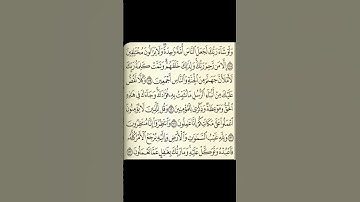 وَلَوْ شَآءَ رَبُّكَ لَجَعَلَ ٱلنَّاسَ أُمَّةً وَٰحِدَةً وَلَا يَزَالُونَ مُخْتَلِفِينَ
١١٨ إِلَّا مَن رَّحِمَ رَبُّكَ وَلِذَٰلِكَ خَلَقَهُمْ وَتَمَّتْ كَلِمَةُ رَبِّكَ
لَأَمْلَأَنَّ جَهَنَّمَ مِنَ ٱلْجِنَّةِ وَٱلنَّاسِ أَجْمَعِينَ ١١٩ وَكُلًّا نَّقُصُّ
عَلَيْكَ مِنْ أَنۢبَآءِ ٱلرُّسُلِ مَا نُثَبِّتُ بِهِۦ فُؤَادَكَ وَجَآءَكَ فِى هَٰذِهِ
ٱلْحَقُّ وَمَوْعِظَةٌ وَذِكْرَىٰ لِلْمُؤْمِنِينَ ١٢٠ وَقُل لِّلَّذِينَ لَا يُؤْمِنُونَ
ٱعْمَلُوا۟ عَلَىٰ مَكَانَتِكُمْ إِنَّا عَٰمِلُونَ ١٢١ وَٱنتَظِرُوٓا۟ إِنَّا مُنتَظِرُونَ
١٢٢ وَلِلَّهِ غَيْبُ ٱلسَّمَٰوَٰتِ وَٱلْأَرْضِ وَإِلَيْهِ يُرْجَعُ ٱلْأَمْرُ كُلُّهُۥ
فَٱعْبُدْهُ وَتَوَكَّلْ عَلَيْهِ وَمَا رَبُّكَ بِغَٰفِلٍ عَمَّا تَعْمَلُونَ ١٢٣